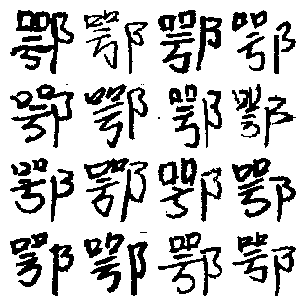 鄂鄂鄂鄂
鄂鄂鄂鄂
鄂鄂鄂鄂
鄂鄂鄂鄂